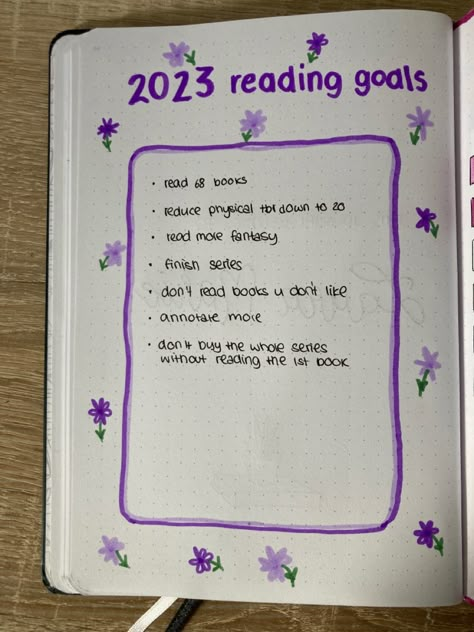 2023 reading goals
· read 68 books
· reduce physical tbr down to 20
· read more fantasy
· finish series
· don't read books u don't like
· annotate more
· don't buy the whole series
without reading the 1st book